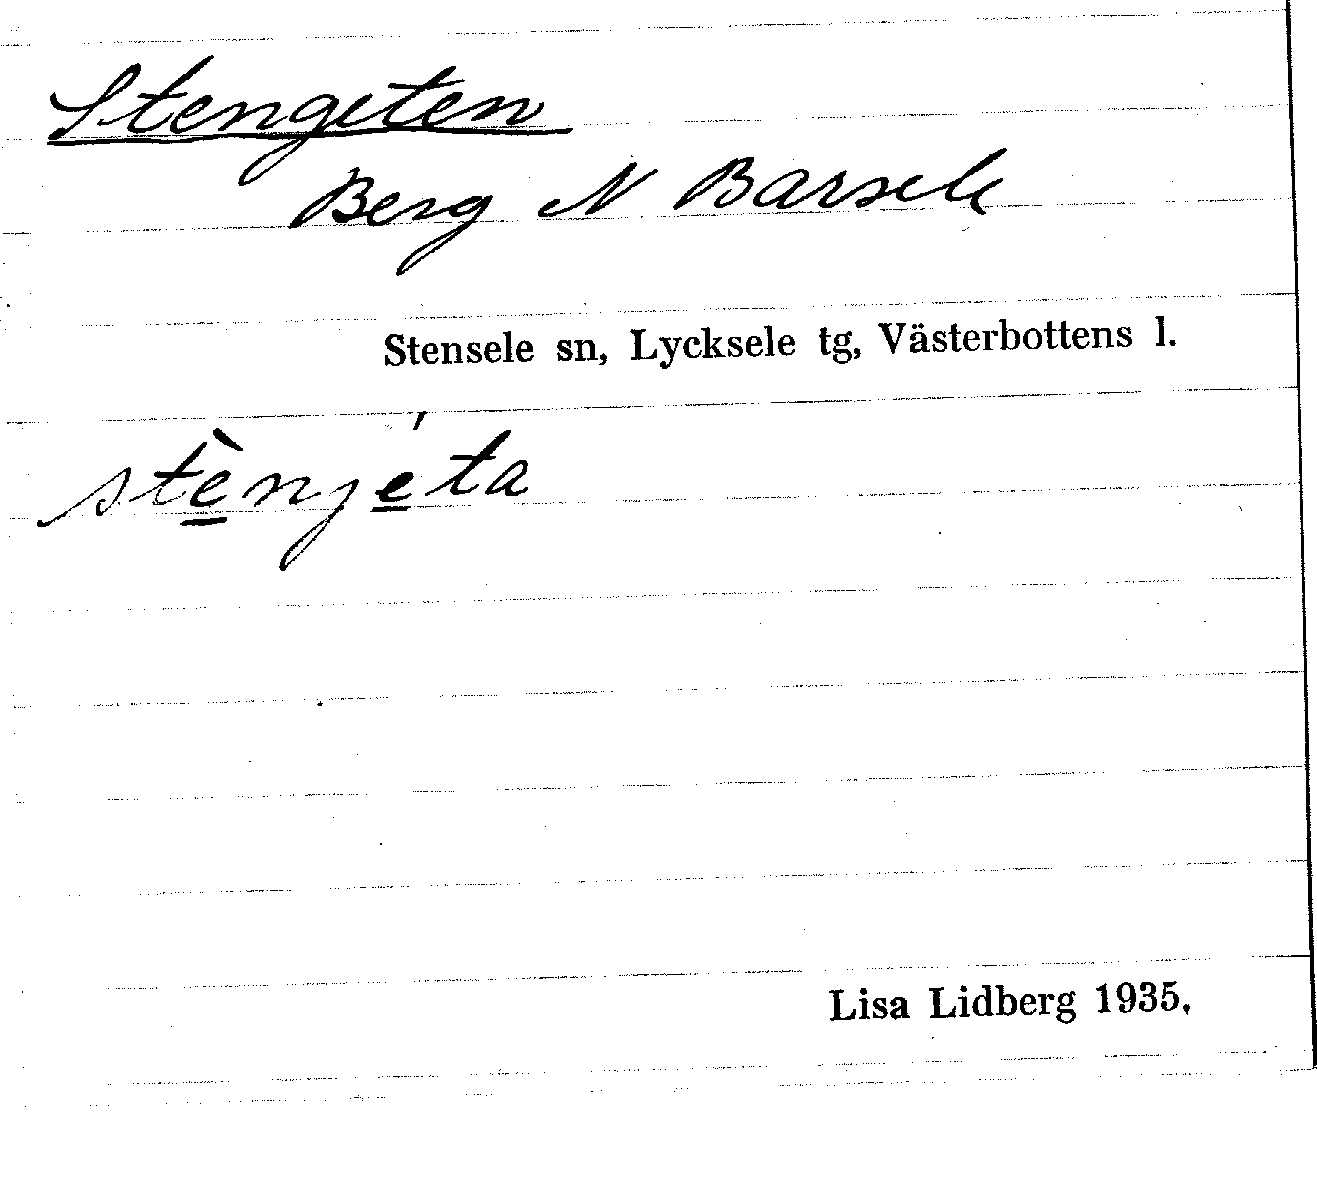 Stengeten
Berg N Barsele
Stensele sn, Lycksele tg, Västerbottens l.
stè̱njé̱ta
Lisa Lidberg 1935.